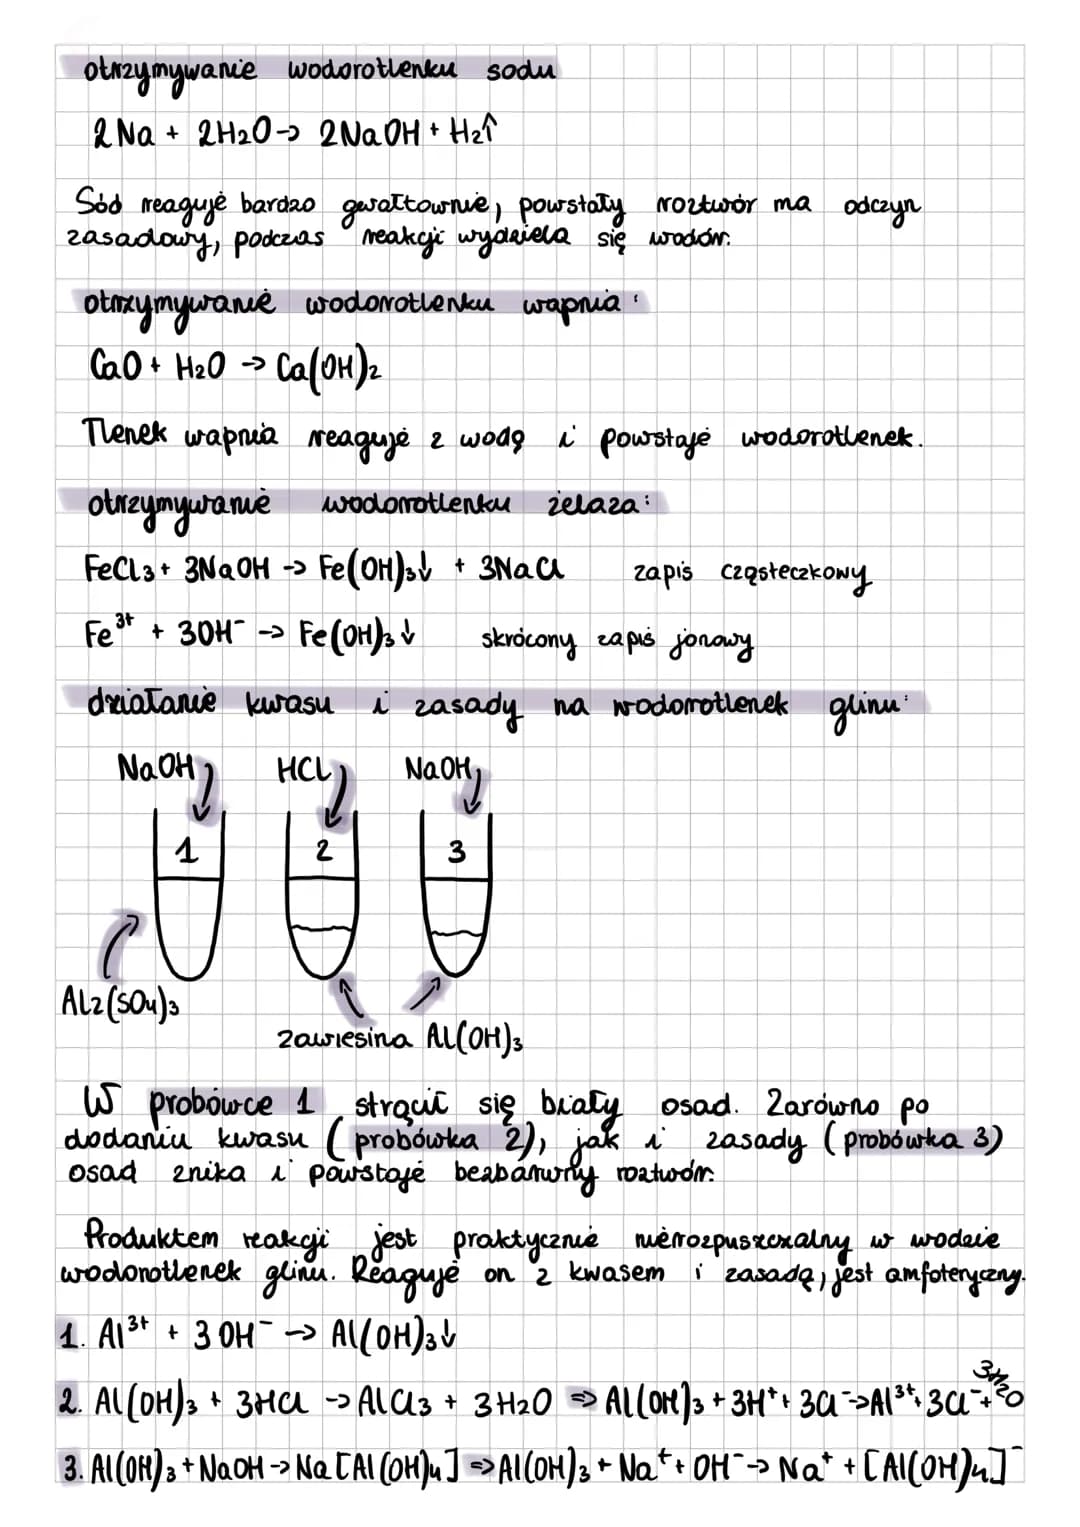 otrzymywanie wodorotlenku sodu
2Na + 2H2O → 2NaOH + H2↑
Sód reaguje bardzo gwałtownie, powstały roztwór ma odczyn
zasadowy, podczas reakcji wydziela się wodór.
otrzymywanie wodorotlenku wapnia:
CaO + H2O → Ca(OH)2
Tlenek wapnia reaguje z wodą i powstaje wodorotlenek.
otrzymywanie wodorotlenku żelaza:
FeCl3 + 3NaOH → Fe(OH)3↓ + 3NaCl zapis cząsteczkowy
Fe3+ + 3OH- → Fe(OH)3↓ skrócony zapis jonowy
działanie kwasu i zasady na wodorotlenek glinu:
NaOH HCl NaOH
1 2 3
Al2(SO4)3
zawiesina Al(OH)3
W probówce 1 strącił się biały osad. Zarówno po
dodaniu kwasu (probówka 2), jak i zasady (probówka 3)
osad znika i powstaje bezbarwny roztwór.
Produktem reakcji jest praktycznie nierozpuszczalny w wodzie
wodorotlenek glinu. Reaguje on z kwasem i zasadą, jest amfoteryczny.
1. Al3+ + 3OH- → Al(OH)3↓
2. Al(OH)3 + 3HCl → AlCl3 + 3H2O ⇒ Al(OH)3 + 3H+ + 3Cl- → Al3+ + 3Cl- + 3H2O
3. Al(OH)3 + NaOH → Na[Al(OH)4] ⇒ Al(OH)3 + Na+ + OH- → Na+ + [Al(OH)4]-